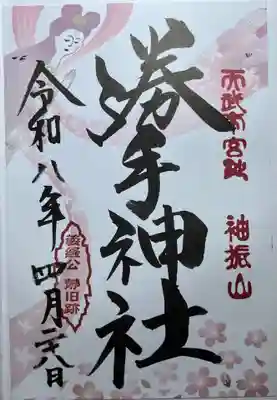 天武帝宮趾
袖振山
勝手神社
義経公
静旧跡
令和八年四月二八日